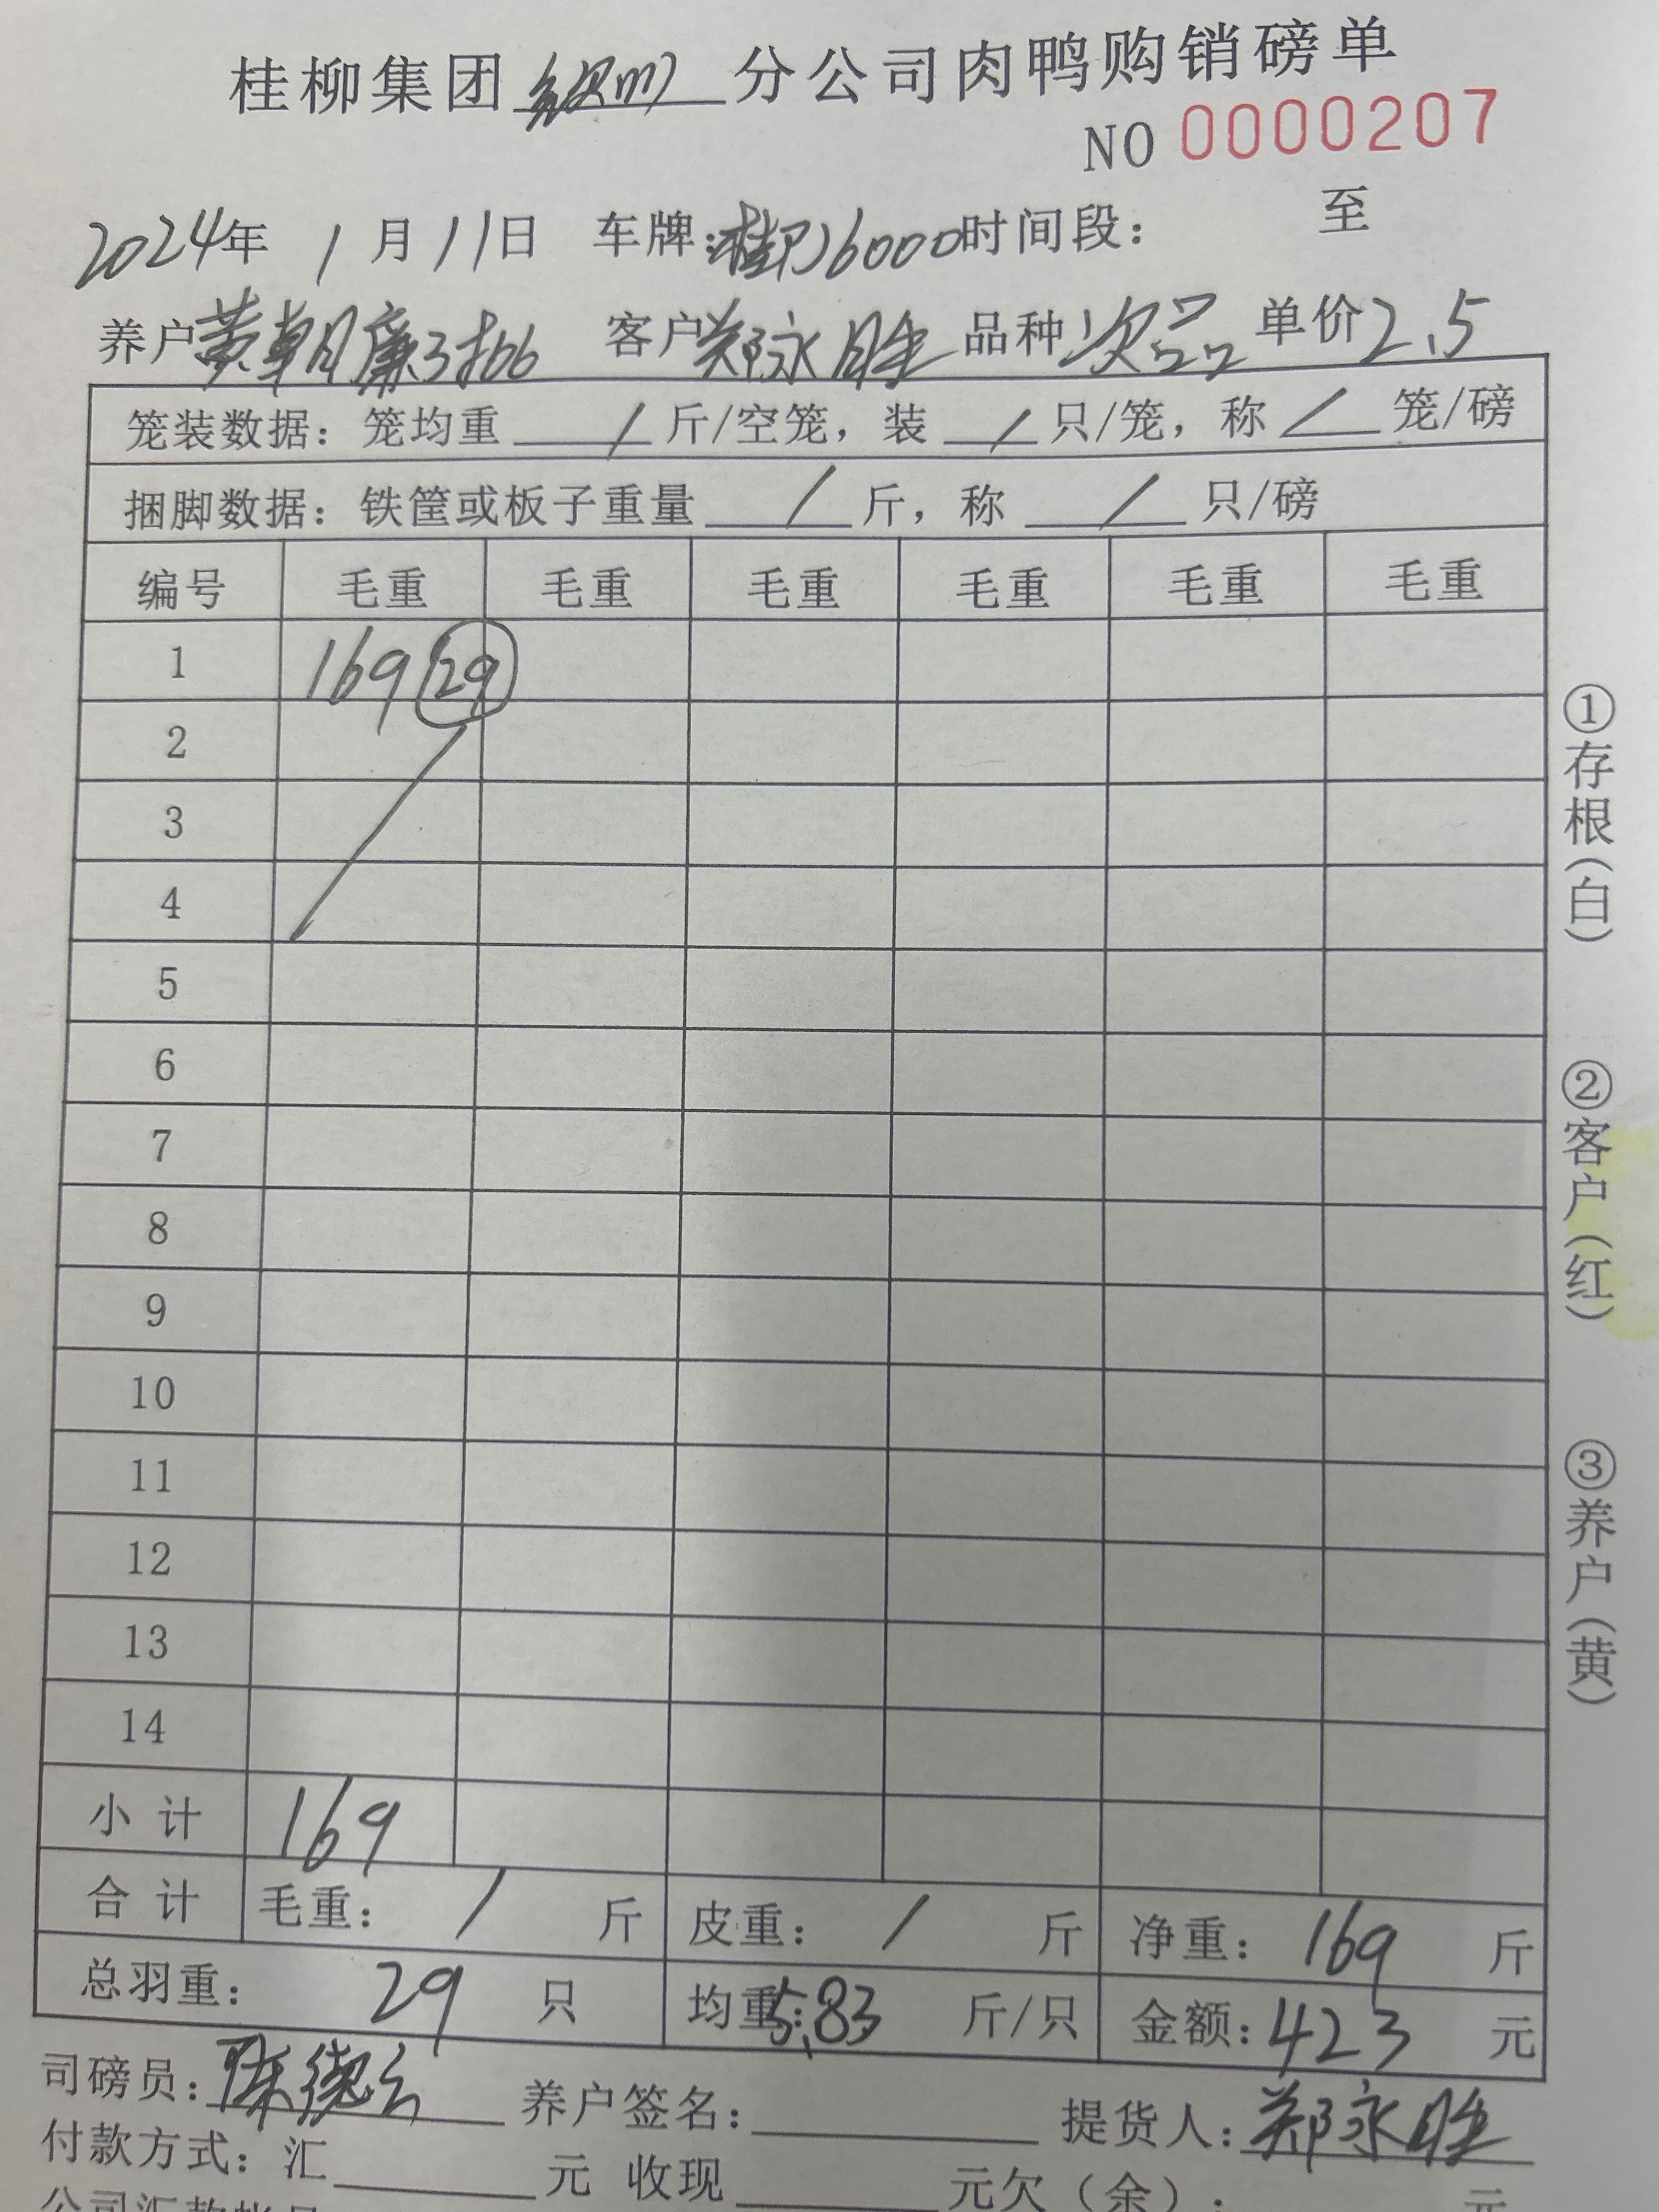 桂柳集团 分公司肉鸭购销磅单
NO 0000207
2024年 1月11日 车牌:桂J16000时间段: 至
养户黄朝廉3批 客户郑永胜 品种次品 单价2.5
笼装数据:笼均重 / 斤/空笼,装 / 只/笼,称 / 笼/磅
捆脚数据:铁筐或板子重量 / 斤,称 / 只/磅
编号 毛重 毛重 毛重 毛重 毛重 毛重
1 169 29
2
3
4
5
6
7
8
9
10
11
12
13
14
小计 169
合计 毛重: / 斤 皮重: / 斤 净重: 169 斤
总羽重: 29 只 均重:5.83 斤/只 金额:423 元
司磅员:陈德云 养户签名: 提货人:郑永胜
付款方式:汇 元 收现 元欠(余): 元
①存根(白)
②客户(红)
③养户(黄)